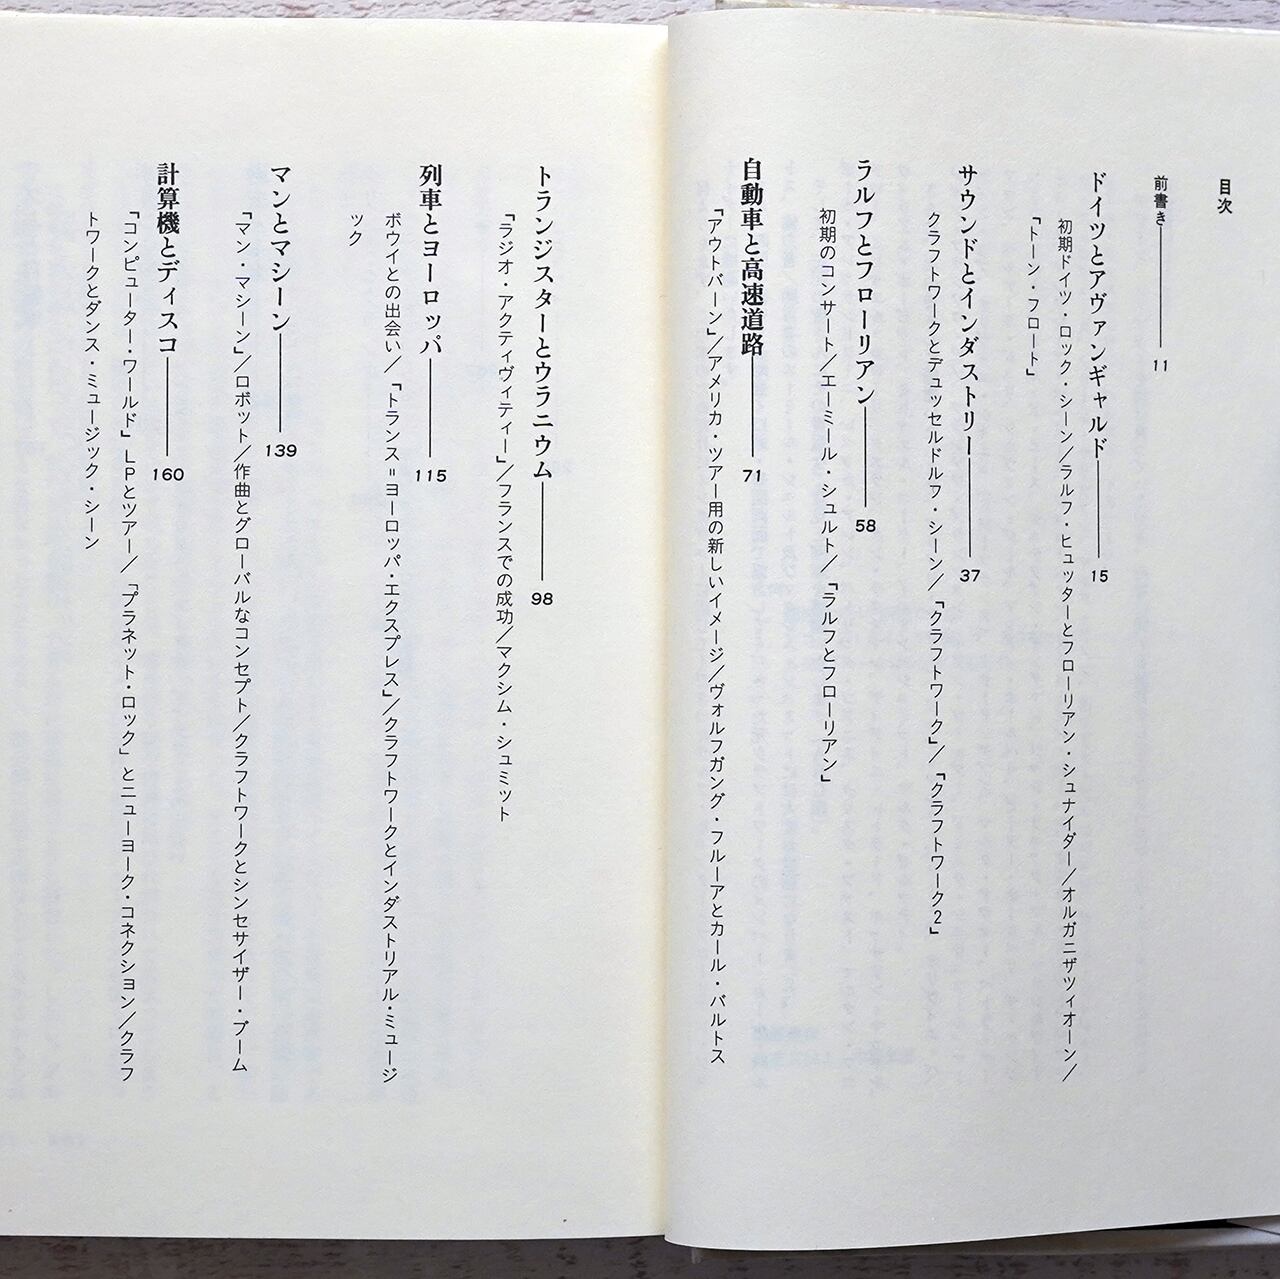 目次
前書き────11
ドイツとアヴァンギャルド────15
初期ドイツ・ロック・シーン/ラルフ・ヒュッターとフローリアン・シュナイダー/オルガニザツィオーン/
「トーン・フロート」
サウンドとインダストリー────37
クラフトワークとデュッセルドルフ・シーン/「クラフトワーク」/「クラフトワーク2」
ラルフとフローリアン────58
初期のコンサート/エーミール・シュルト/「ラルフとフローリアン」
自動車と高速道路────71
「アウトバーン」/アメリカ・ツアー用の新しいイメージ/ヴォルフガング・フルーアとカール・バルトス
トランジスターとウラニウム────98
「ラジオ・アクティヴィティー」/フランスでの成功/マクシム・シュミット
列車とヨーロッパ────115
ボウイとの出会い/「トランス=ヨーロッパ・エクスプレス」/クラフトワークとインダストリアル・ミュージ
ック
マンとマシーン────139
「マン・マシーン」/ロボット/作曲とグローバルなコンセプト/クラフトワークとシンセサイザー・ブーム
計算機とディスコ────160
「コンピューター・ワールド」LPとツアー/「プラネット・ロック」とニューヨーク・コネクション/クラフ
トワークとダンス・ミュージック・シーン